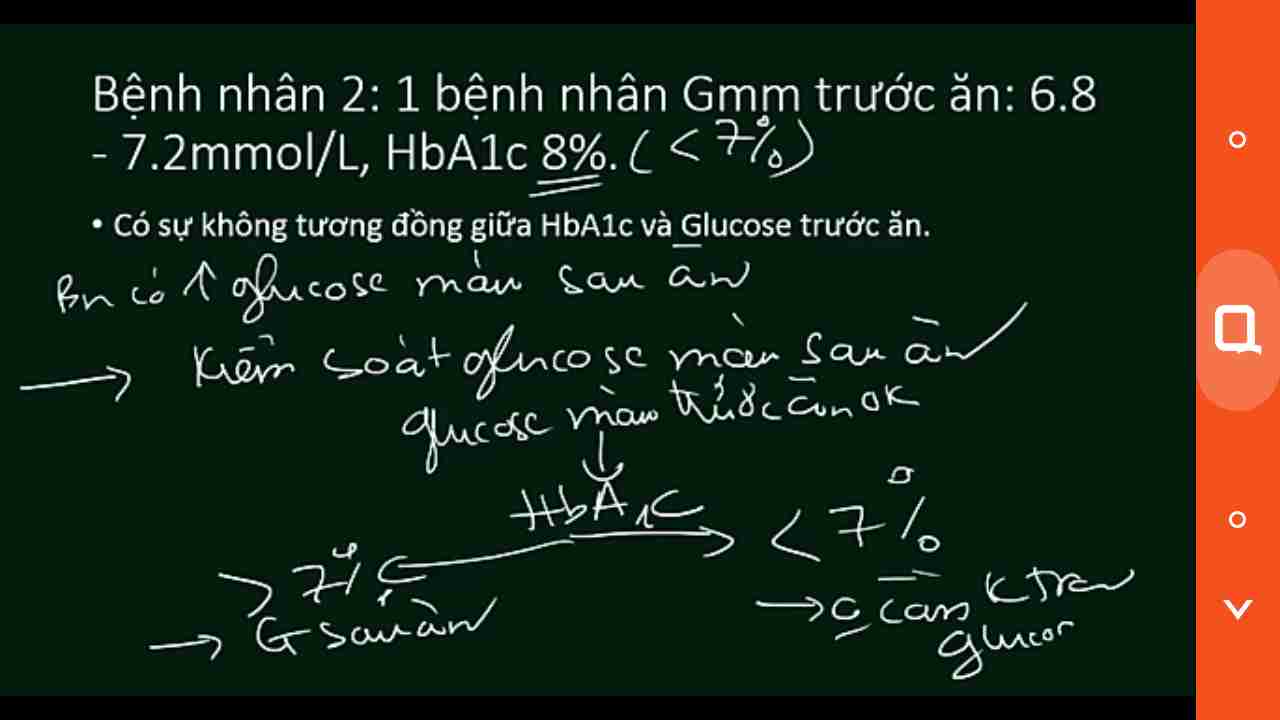 Bệnh nhân 2: 1 bệnh nhân Gmm trước ăn: 6.8
- 7.2mmol/L, HbA1c 8%. (< 7%)
• Có sự không tương đồng giữa HbA1c và Glucose trước ăn.
Bn có ↑ glucose máu sau ăn
→ Kiểm soát glucose máu sau ăn
glucose máu trước ăn OK
↓
HbA1C
> 7% < 7%
→ G sau ăn → cần K tra
glucos